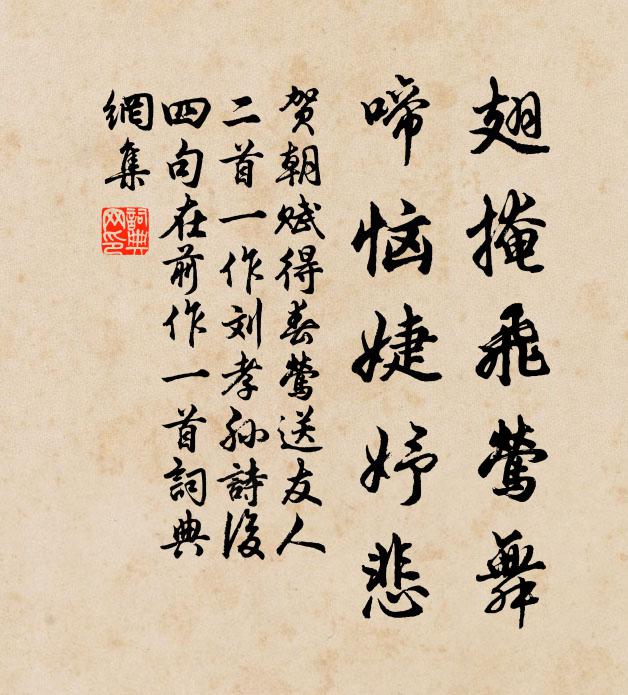 翅掩飛鶯舞
啼恼婕妤悲
贺朝赋得春鶯送友人
二首一作刘孝孙詩後
四句在前作一首詞典
網集
詞典網印